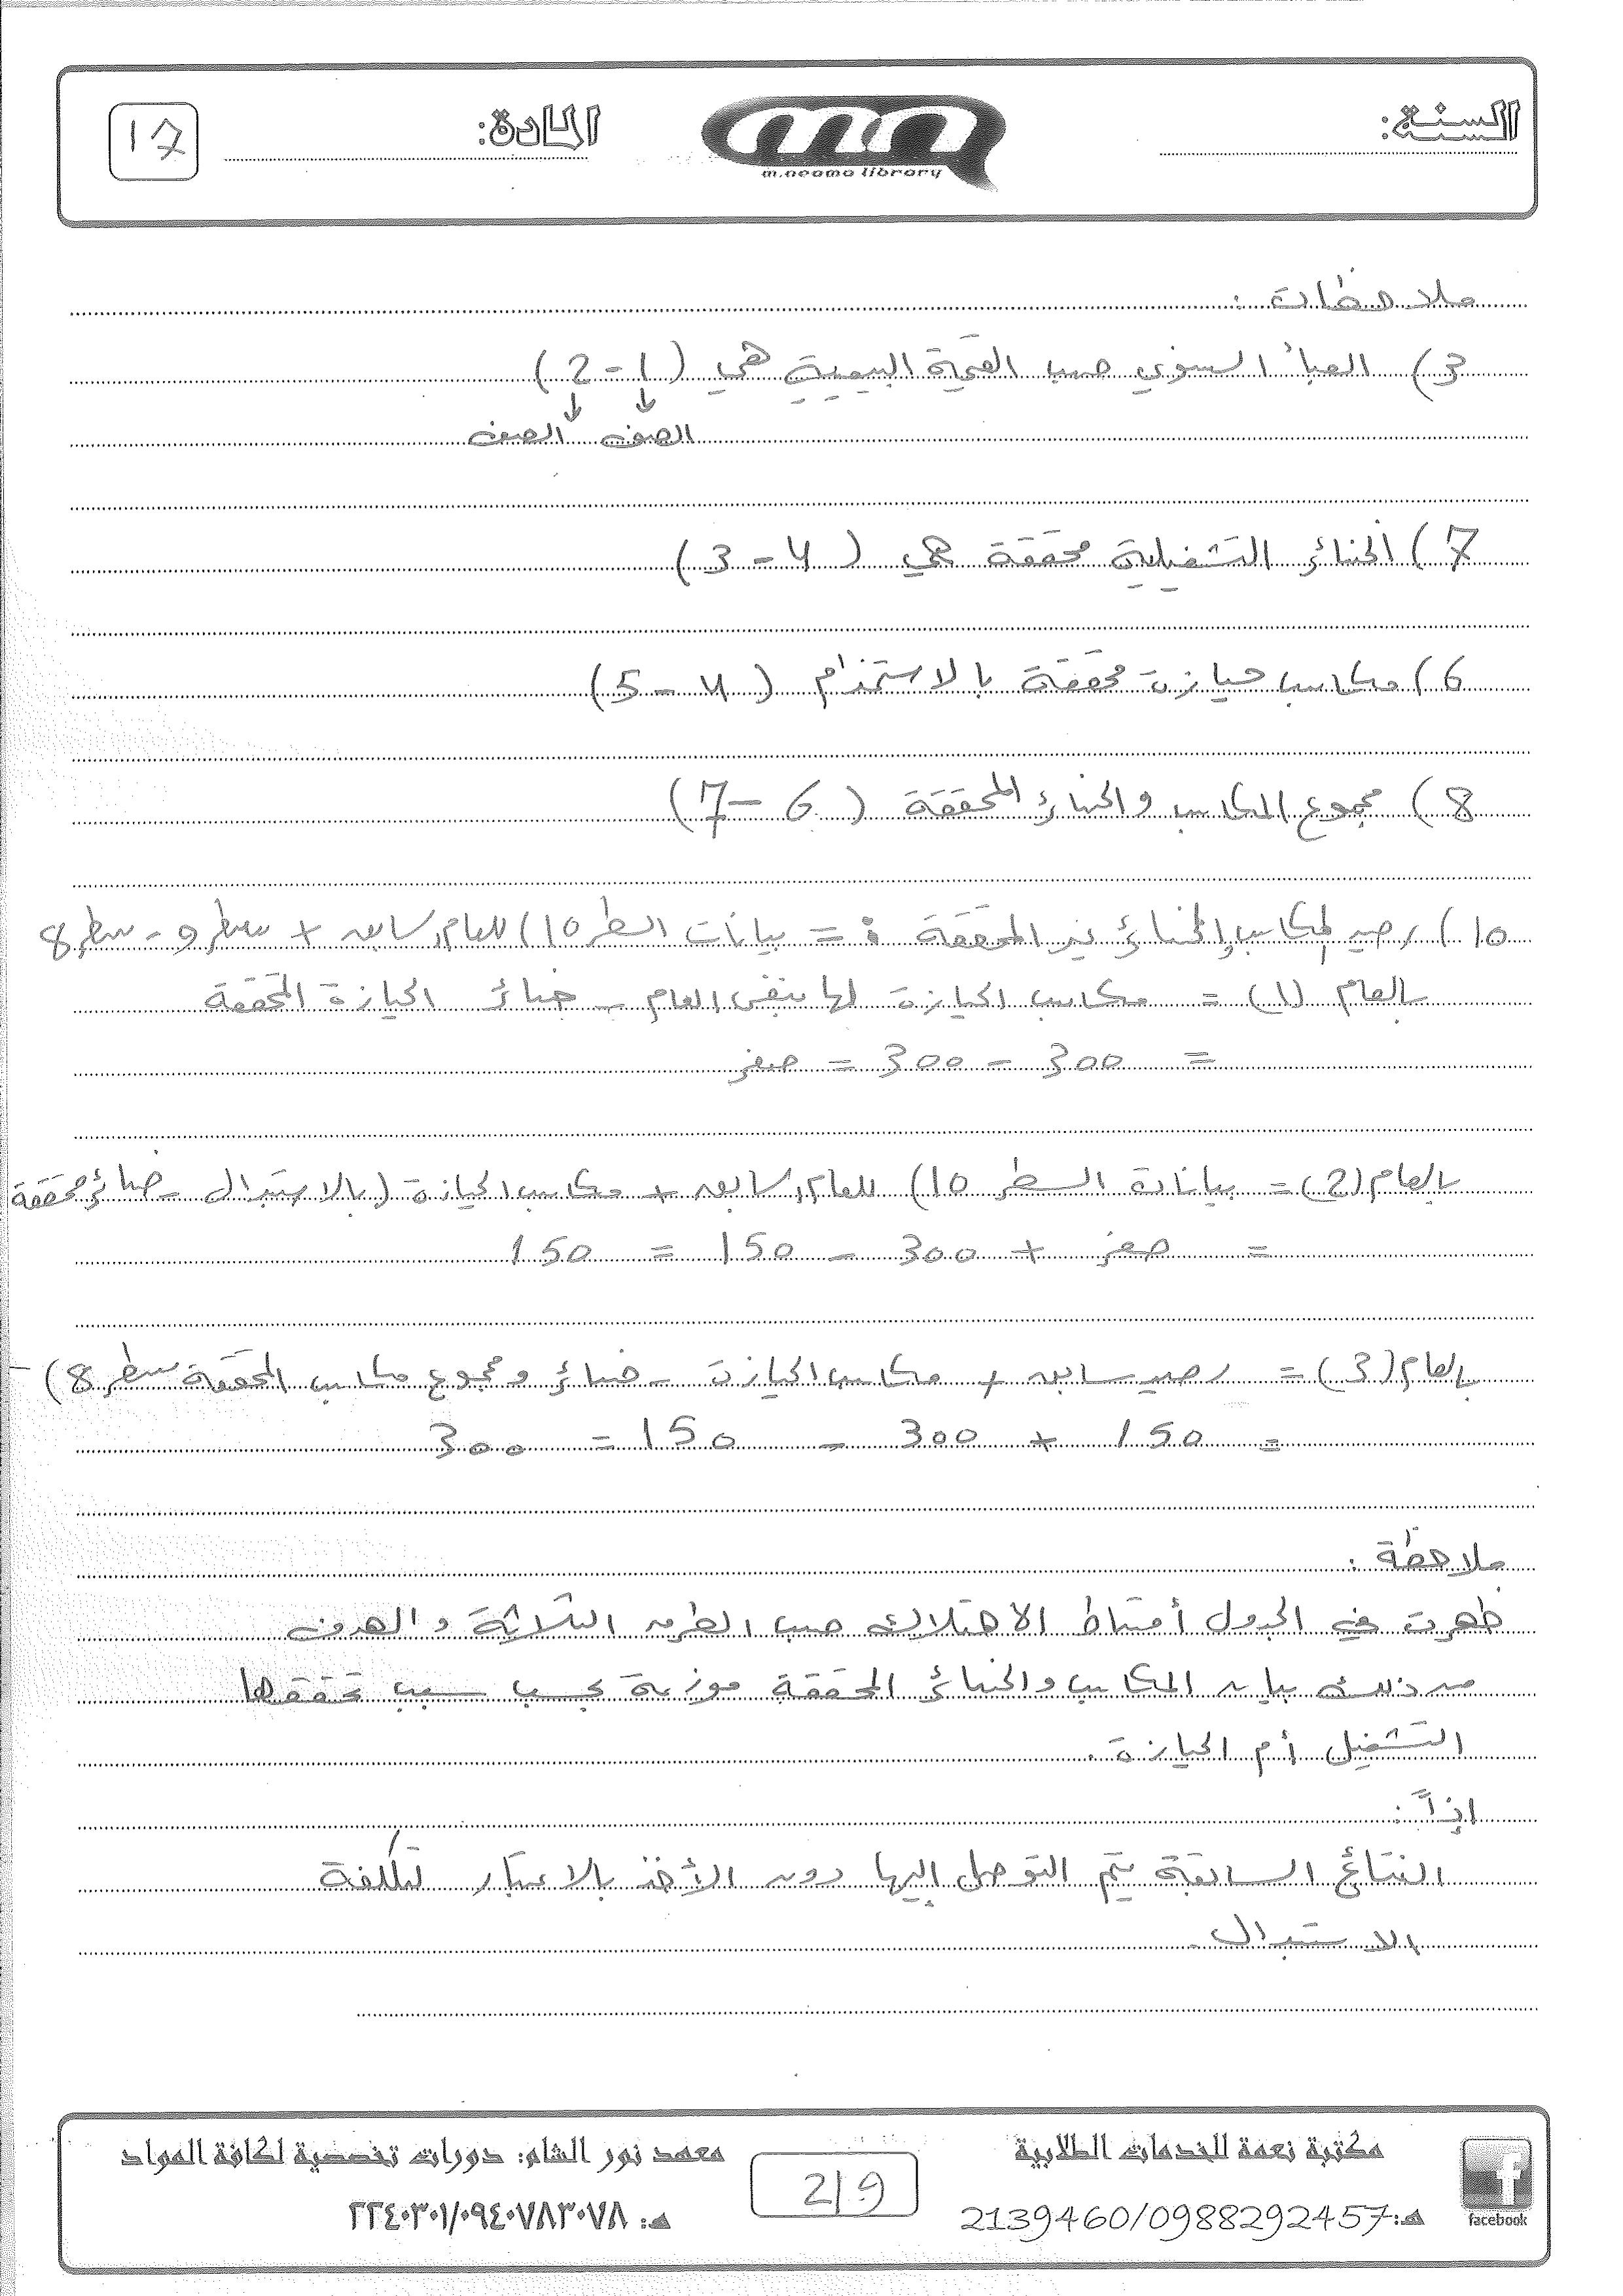 السنة:
المادة:
17
m.neama library
ملاحظات :
3) العبأ السنوي حسب القيمة البيعية هي (1 - 2)
الصف الصف
7) الخسائر التشغيلية محققة هي (4 - 3)
6) مكاسب حيازة محققة بالاستخدام (4 - 5)
8) مجموع المكاسب والخسائر المحققة (6 - 7)
10) رصيد المكاسب والخسائر غير المحققة : = بيانات السطر 10) للعام سابق + سطر 9 - سطر 8
بالعام (1) = مكاسب الحيازة لها بنفس العام - خسائر الحيازة المحققة
= 300 - 300 = صفر
بالعام (2) = بيانات السطر 10) للعام سابق + مكاسب الحيازة (بالاستبدال - خسائر محققة
= صفر + 300 - 150 = 150
بالعام (3) = رصيد سابق + مكاسب الحيازة - خسائر ومجموع مكاسب المحققة سطر 8) -
= 150 + 300 - 150 = 300
ملاحظة :
ظهرت في الجدول أقساط الاهتلاك حسب الطرق الثلاثة والهدف
من ذلك بيان المكاسب والخسائر المحققة موزعة بحسب سبب تحققها
التشغيل أم الحيازة .
إذاً :
النتائج السابقة يتم التوصل إليها دون الأخذ بالاعتبار لتكلفة
الاستبدال .
مكتبة نعمة للخدمات الطلابية
هـ: 2139460/0988292457
facebook
2/9
معهد نور الشام: دورات تخصصية لكافة المواد
هـ: ٢٢٤٠٣٠١/٠٩٤٠٧٨٣٠٧٨